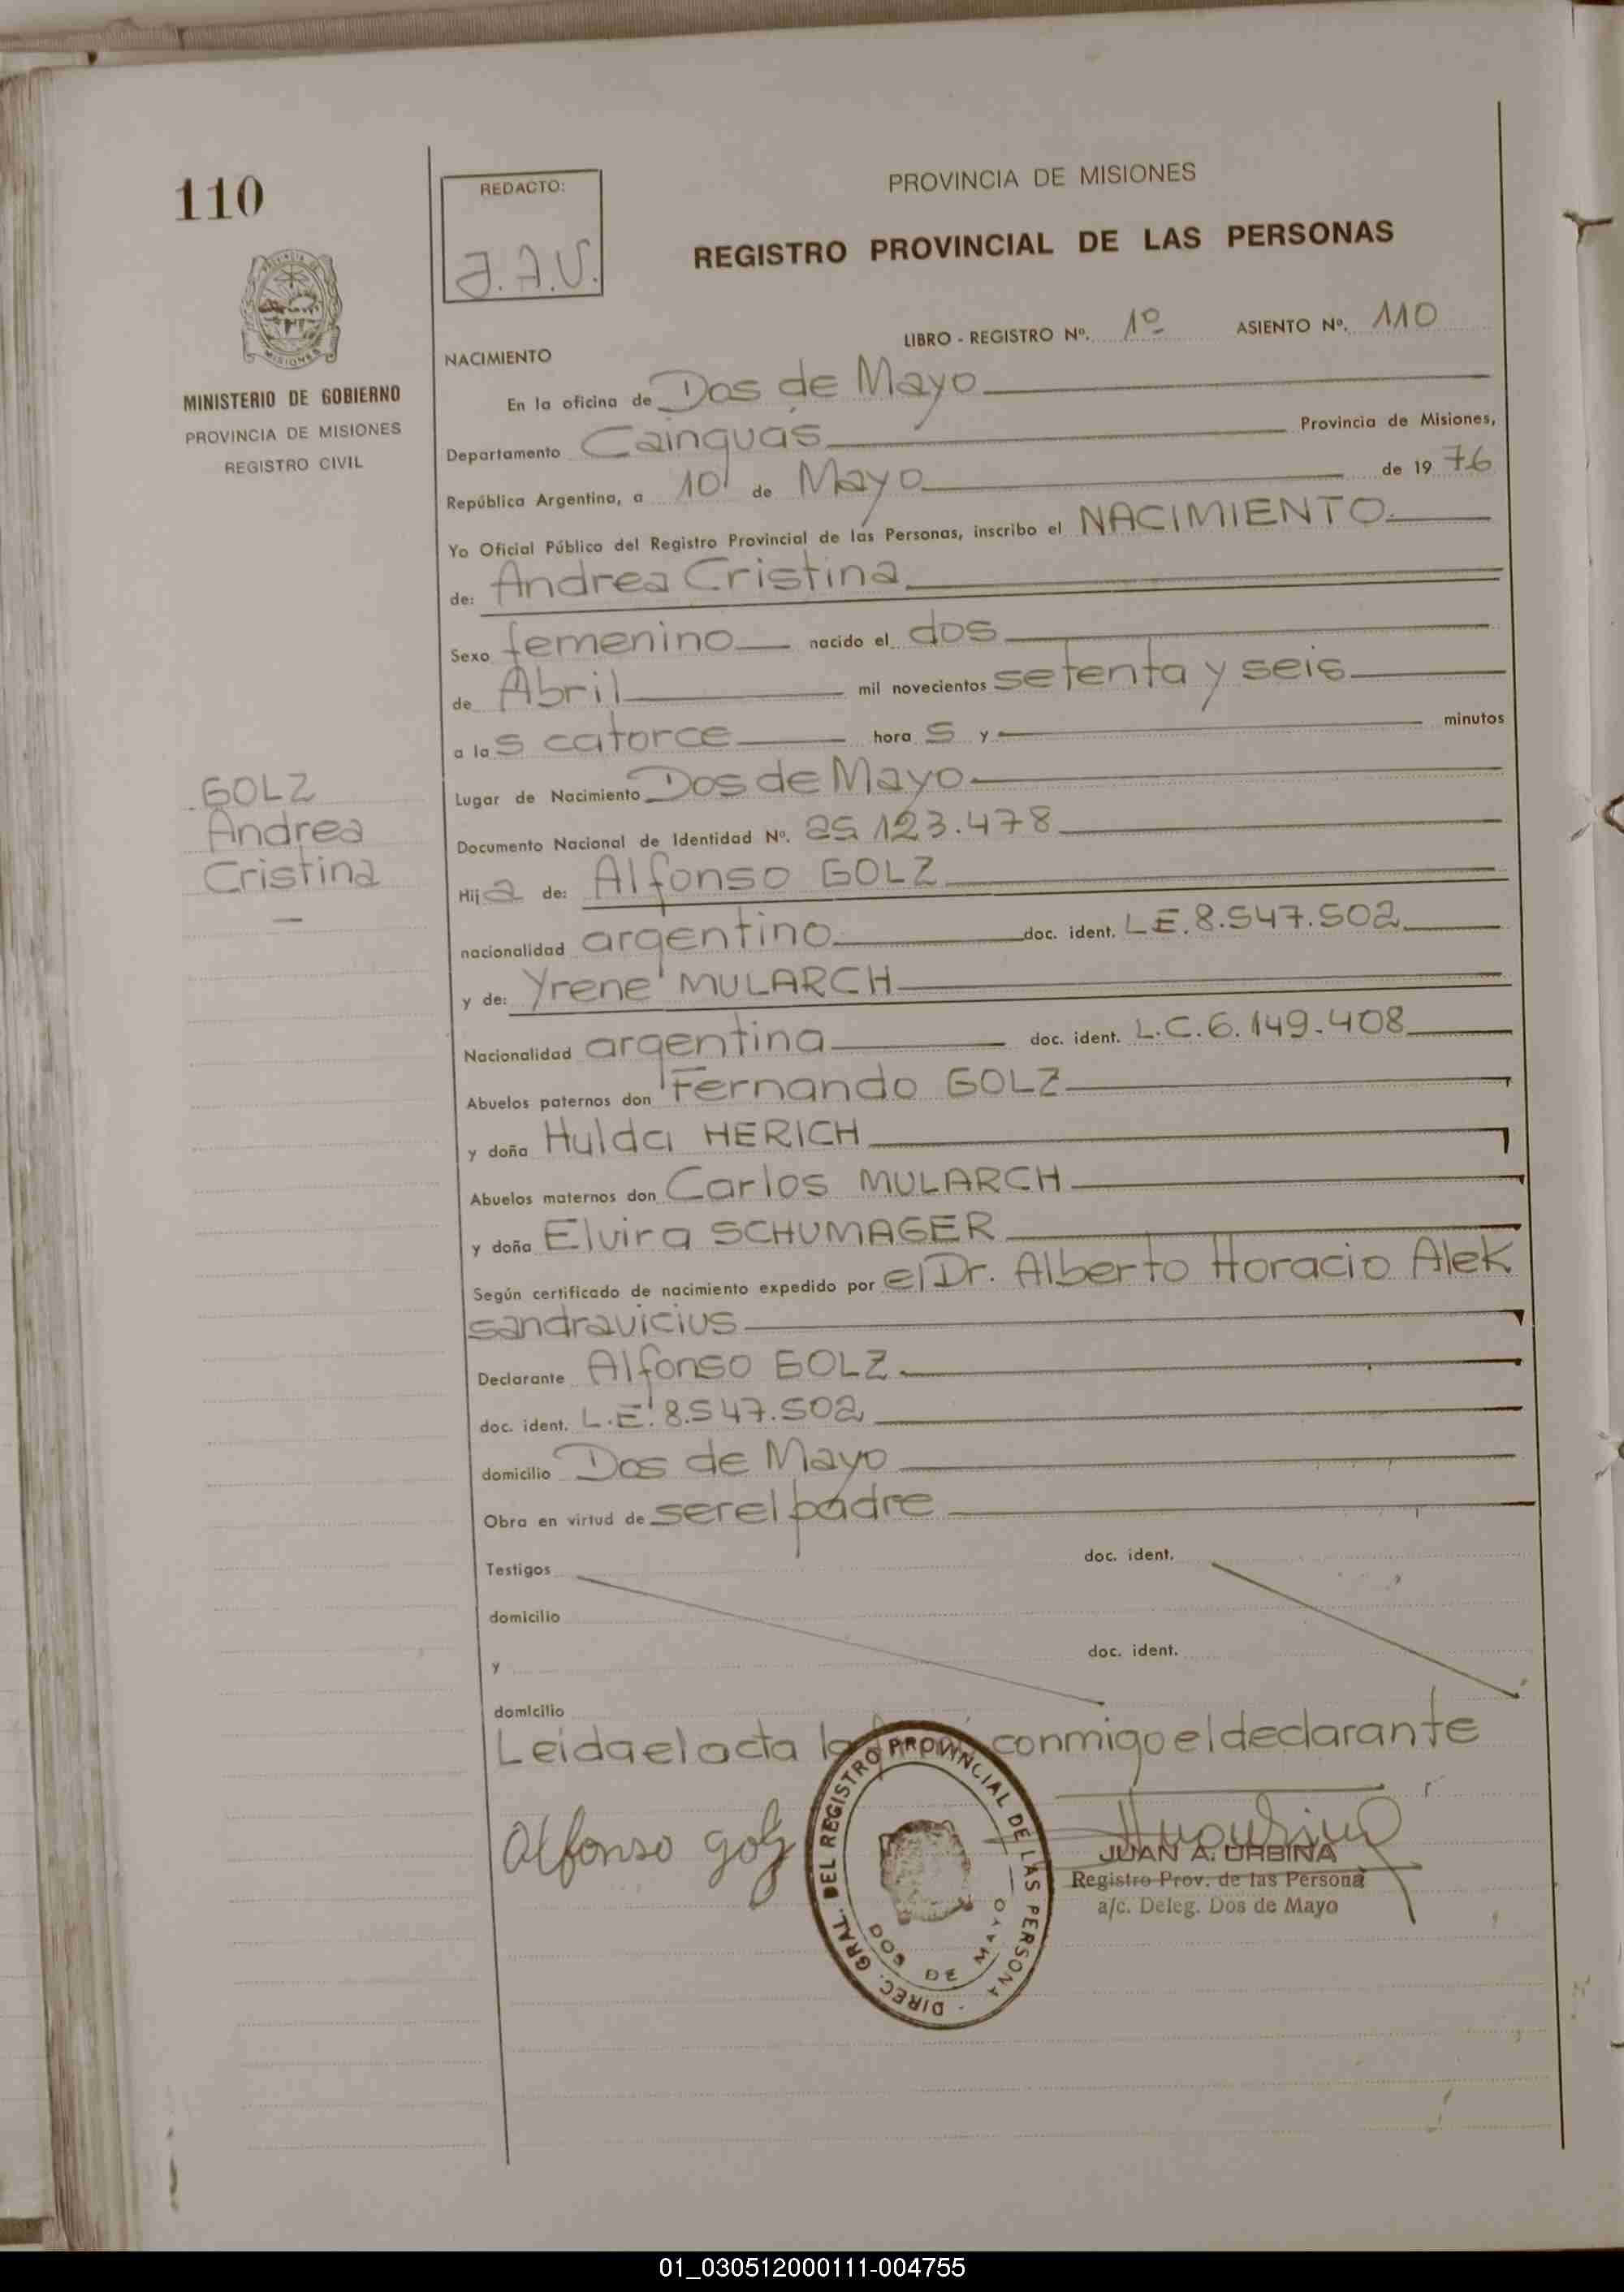 110
PROVINCIA DE MISIONES
MINISTERIO DE GOBIERNO
PROVINCIA DE MISIONES
REGISTRO CIVIL
GOLZ
Andrea
Cristina
REDACTO:
J.A.U.
PROVINCIA DE MISIONES
REGISTRO PROVINCIAL DE LAS PERSONAS
LIBRO - REGISTRO Nº. 1º ASIENTO Nº. 110
NACIMIENTO
En la oficina de Dos de Mayo
Departamento Cainguás Provincia de Misiones,
República Argentina, a 10 de Mayo de 19 76
Yo Oficial Público del Registro Provincial de las Personas, inscribo el NACIMIENTO
de: Andrea Cristina
Sexo femenino nacido el dos
de Abril mil novecientos setenta y seis
a las catorce horas y minutos
Lugar de Nacimiento Dos de Mayo
Documento Nacional de Identidad Nº. 25.123.478
Hija de: Alfonso GOLZ
nacionalidad argentino doc. ident. L.E. 8.547.502
y de: Yrene MULARCH
Nacionalidad argentina doc. ident. L.C. 6.149.408
Abuelos paternos don Fernando GOLZ
y doña Hulda HERICH
Abuelos maternos don Carlos MULARCH
y doña Elvira SCHUMAGER
Según certificado de nacimiento expedido por el Dr. Alberto Horacio Alek
sandravicius
Declarante Alfonso GOLZ
doc. ident. L.E. 8.547.502
domicilio Dos de Mayo
Obra en virtud de ser el padre
Testigos doc. ident.
domicilio
y doc. ident.
domicilio
Leida el acta la conmigo el declarante
Alfonso Golz
DIREC. GRAL. DEL REGISTRO PROVINCIAL DE LAS PERSONA
DOS DE MAYO
JUAN A. URBINA
Registro Prov. de las Persona
a/c. Deleg. Dos de Mayo
01_030512000111-004755